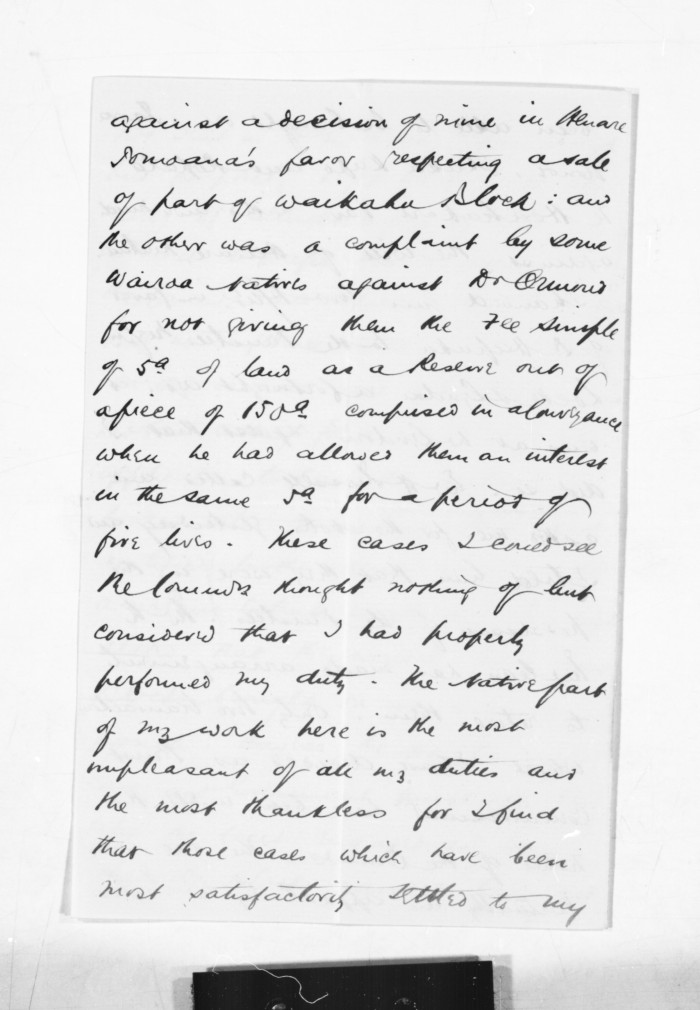 against a decision of mine in Henare
Tomoana's favor respecting a sale
of part of Waikahu Block: and
the other was a complaint by some
Wairoa Natives against Dr Ormond
for not giving them the Fee Simple
of 5a of land as a Reserve out of
a piece of 150a comprised in a Conveyance
when he had allowed them an interest
in the same 5a for a period of
five lives. These cases I could see
the thought nothing of but
considered that I had properly
performed my duty. The Native part
of my work here is the most
unpleasant of all my duties and
the most thankless for I find
that those cases which have been
most satisfactorily settled to my